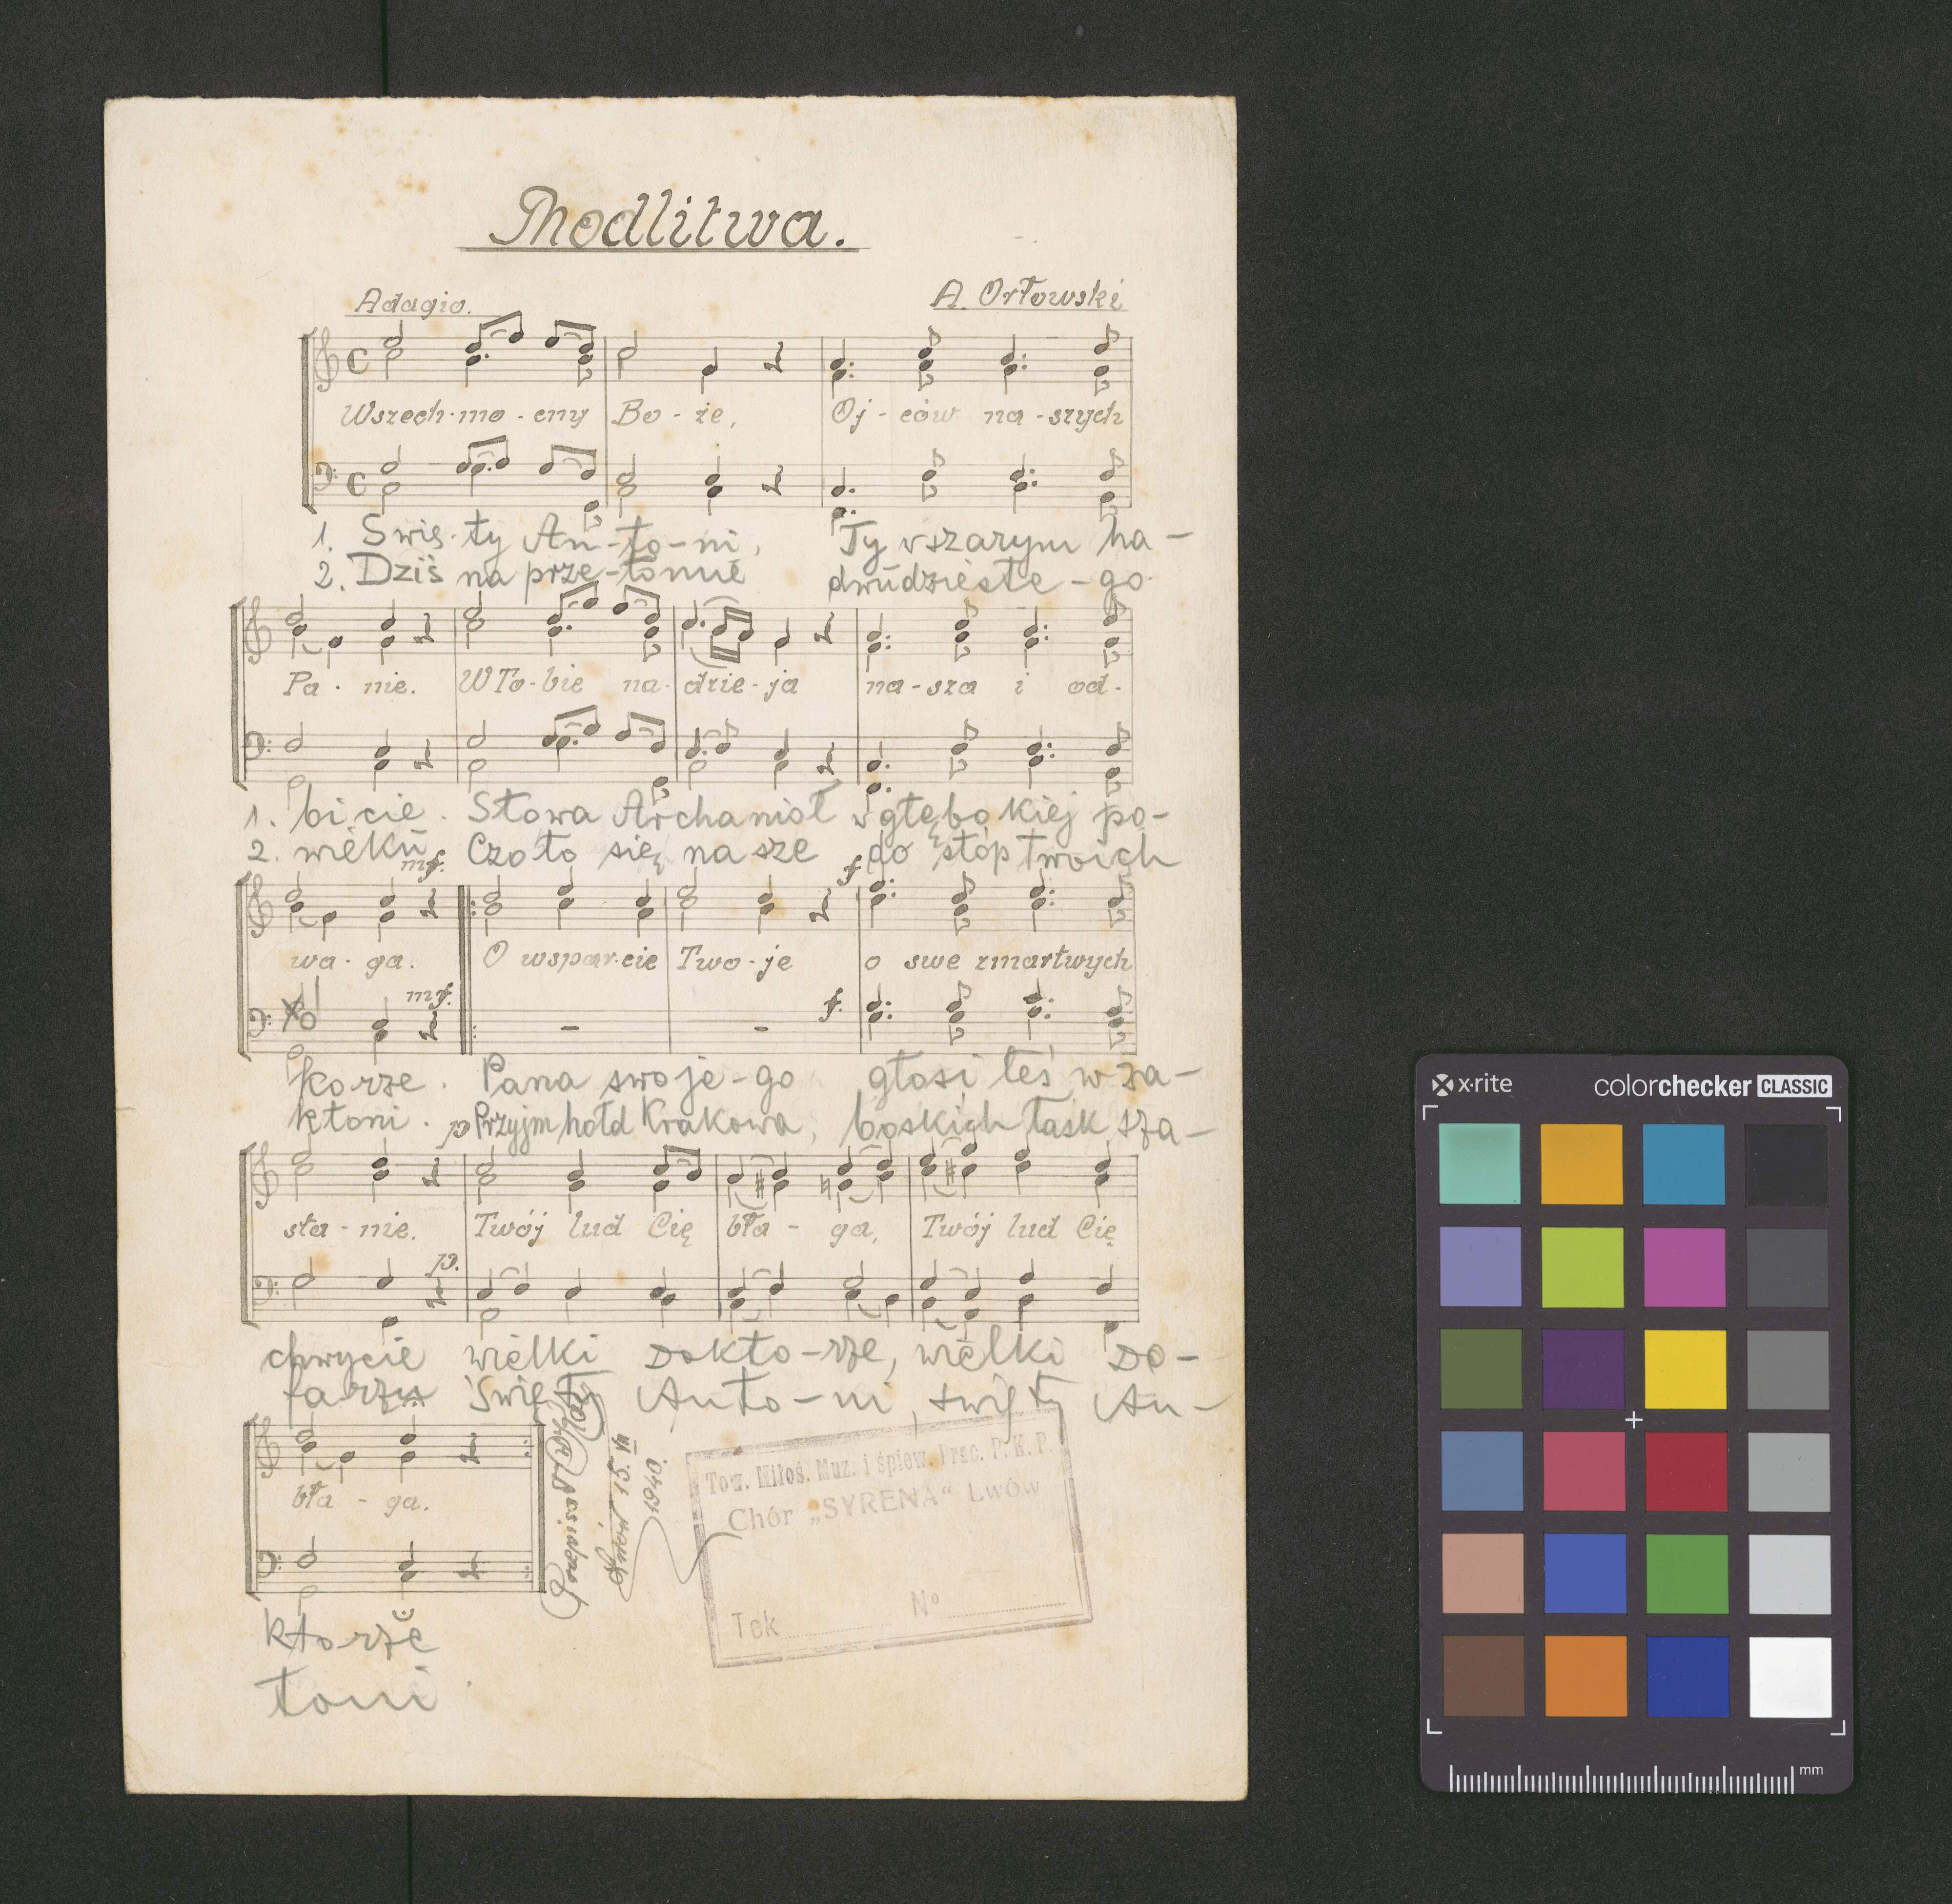 Modlitwa.
Adagio.
A. Orłowski
Wszech-mo-cny Bo-że, Oj-ców na-szych
1. Swię-ty An-to-ni, Ty w szarym ha-
2. Dziś na prze-łomie dwudzieste-go
Pa-nie. W To-bie na-dzie-ja na-sza i od-
1. bicie. Słowa Archanioł w głębokiej po-
2. wieku Czoło się nasze do stóp twoich
mf.
f.
wa-ga. O wspar-cie Two-je o swe zmartwych
mf.
f.
korze. Pana swoje-go głosi łeś w za-
kłoni. Przyjm hołd Krakowa, boskich łask sza-
p
sta-nie. Twój lud Cię bła-ga, Twój lud Cię
p.
chwycie wielki Dokto-rze, wielki Do-
farzu Swięty Anto-ni, święty An-
bła-ga.
Przepisał
Lwów 15. VII
1940.
Tow. Miłoś. Muz. i śpiew. Prac. P. K. P.
Chór „SYRENA“ Lwów
Tek
Nº
ktorze
toni
x-rite
colorchecker CLASSIC
mm